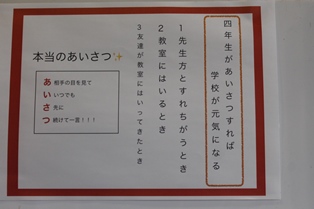 四年生があいさつすれば
学校が元気になる
1先生方とすれちがうとき
2教室にはいるとき
3友達が教室にはいってきたとき
本当のあいさつ✨
あ 相手の目を見て
い いつでも
さ 先に
つ 続けて一言！！！